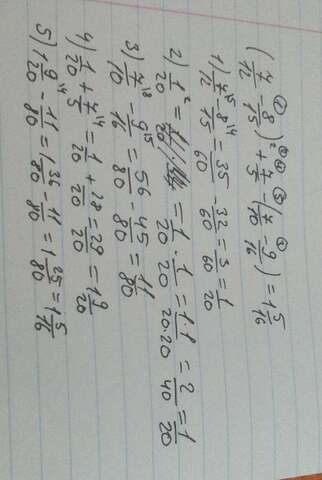 (7/12 - 8/15)² + 7/5 - (7/10 - 9/16) = 1 5/16
1) 7/12 - 8/15 = 35/60 - 32/60 = 3/60 = 1/20
2) 1/20² = 1/20 · 1/20 = 1·1/20·20 = 2/40 = 1/20
3) 7/10 - 9/16 = 56/80 - 45/80 = 11/80
4) 1/20 + 7/5 = 1/20 + 28/20 = 29/20 = 1 9/20
5) 1 9/20 - 11/80 = 1 36/80 - 11/80 = 1 25/80 = 1 5/16